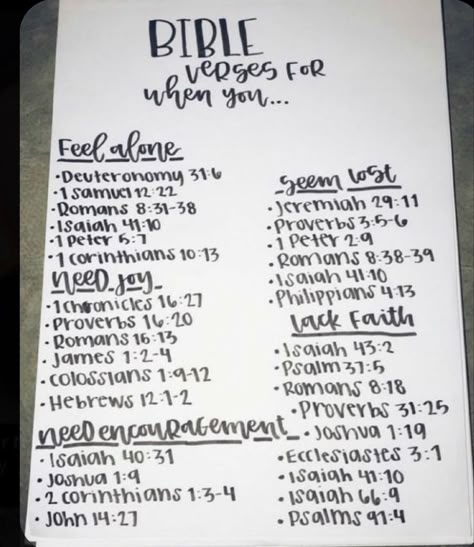 BIBLE
verses for
when you...
Feel alone
•Deuteronomy 31:6
•1 Samuel 12:22
•Romans 8:31-38
•Isaiah 41:10
•1 Peter 5:7
•1 corinthians 10:13
Need joy
•1 chronicles 16:27
•Proverbs 16:20
•Romans 16:13
•James 1:2-4
•colossians 1:9-12
•Hebrews 12:1-2
need encouragement
•Isaiah 40:31
•Joshua 1:9
•2 corinthians 1:3-4
•John 14:27
seem lost
•Jeremiah 29:11
•Proverbs 3:5-6
•1 Peter 2:9
•Romans 8:38-39
•Isaiah 41:10
•Philippians 4:13
lack Faith
•Isaiah 43:2
•Psalm 37:5
•Romans 8:18
•Proverbs 31:25
•Joshua 1:19
•Ecclesiastes 3:1
•Isaiah 41:10
•Isaiah 66:9
•Psalms 91:4